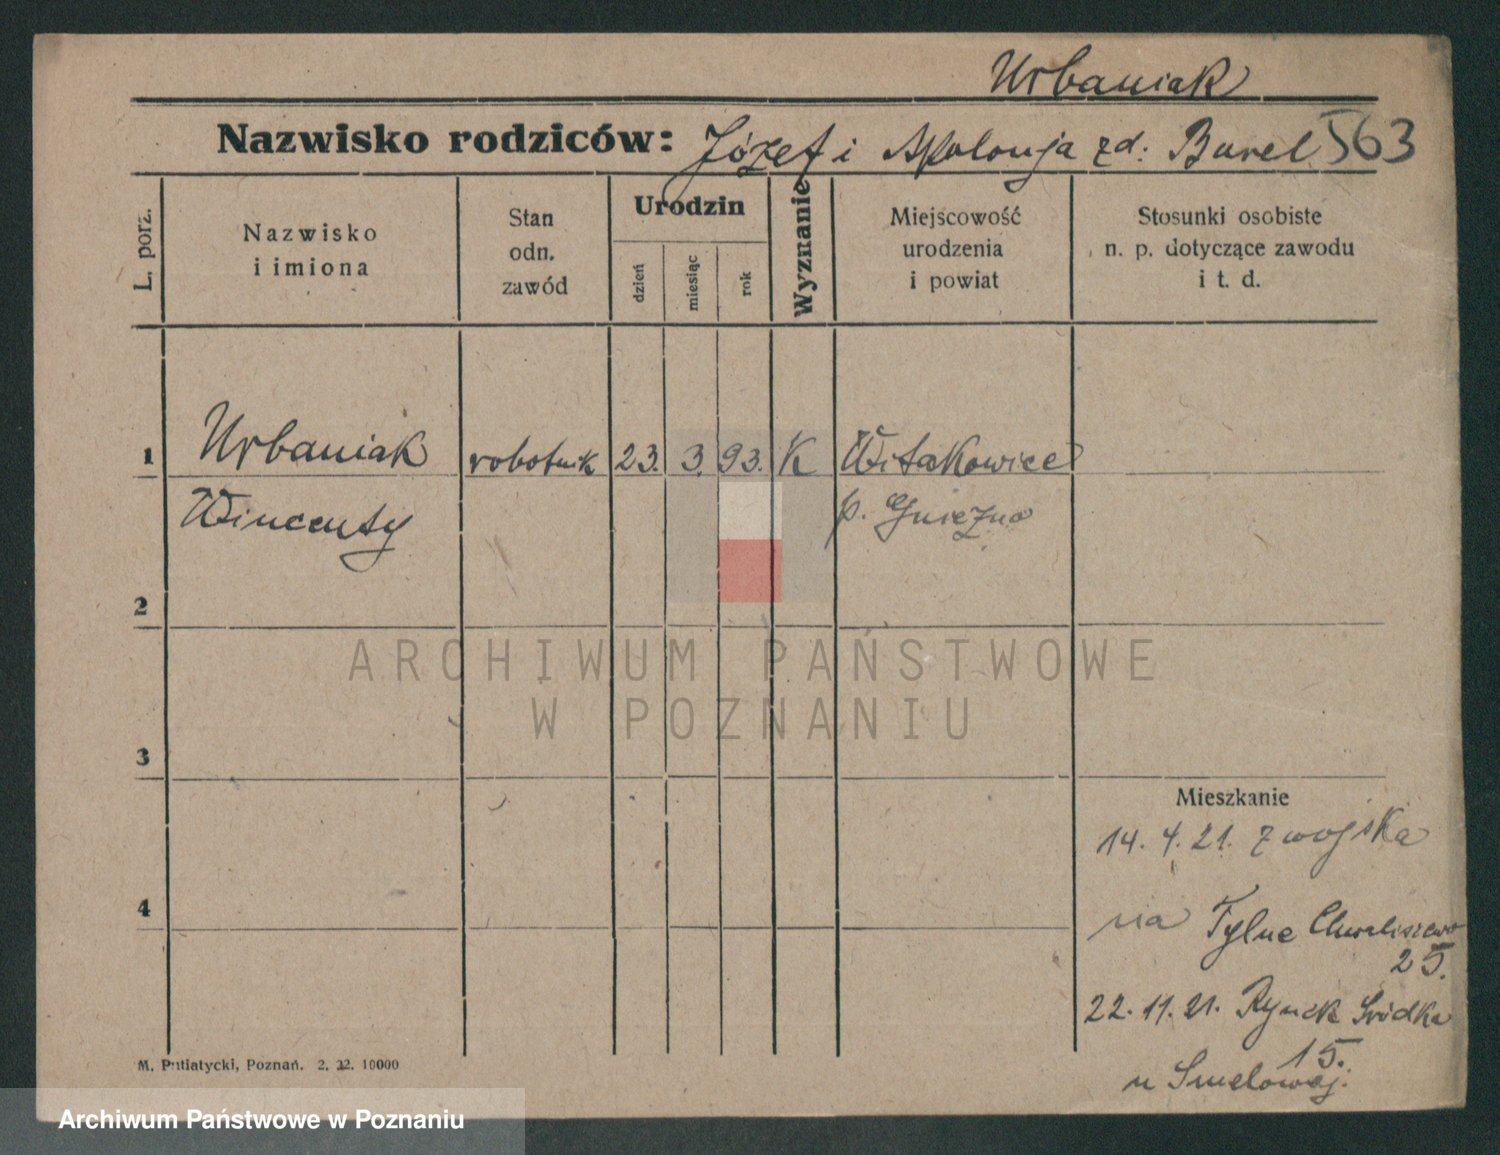 Urbaniak
Nazwisko rodziców: Józef i Apolonja zd. Burel 563
L. porz.
Nazwisko
i imiona
Stan
odn.
zawód
Urodzin
dzień
miesiąc
rok
Wyznanie
Miejscowość
urodzenia
i powiat
Stosunki osobiste
n. p. dotyczące zawodu
i t. d.
1 Urbaniak robotnik 23. 3. 93. K Witakowice
Wincenty p. Gniezno
2
ARCHIWUM PAŃSTWOWE
W POZNANIU
3
Mieszkanie
14. 4. 21. z wojska
4
na Tylne Chwaliszewo
25.
22. 11. 21. Rynek Śródka
15.
u Smelowej.
M. Putiatycki, Poznań. 2. 22. 10000
Archiwum Państwowe w Poznaniu